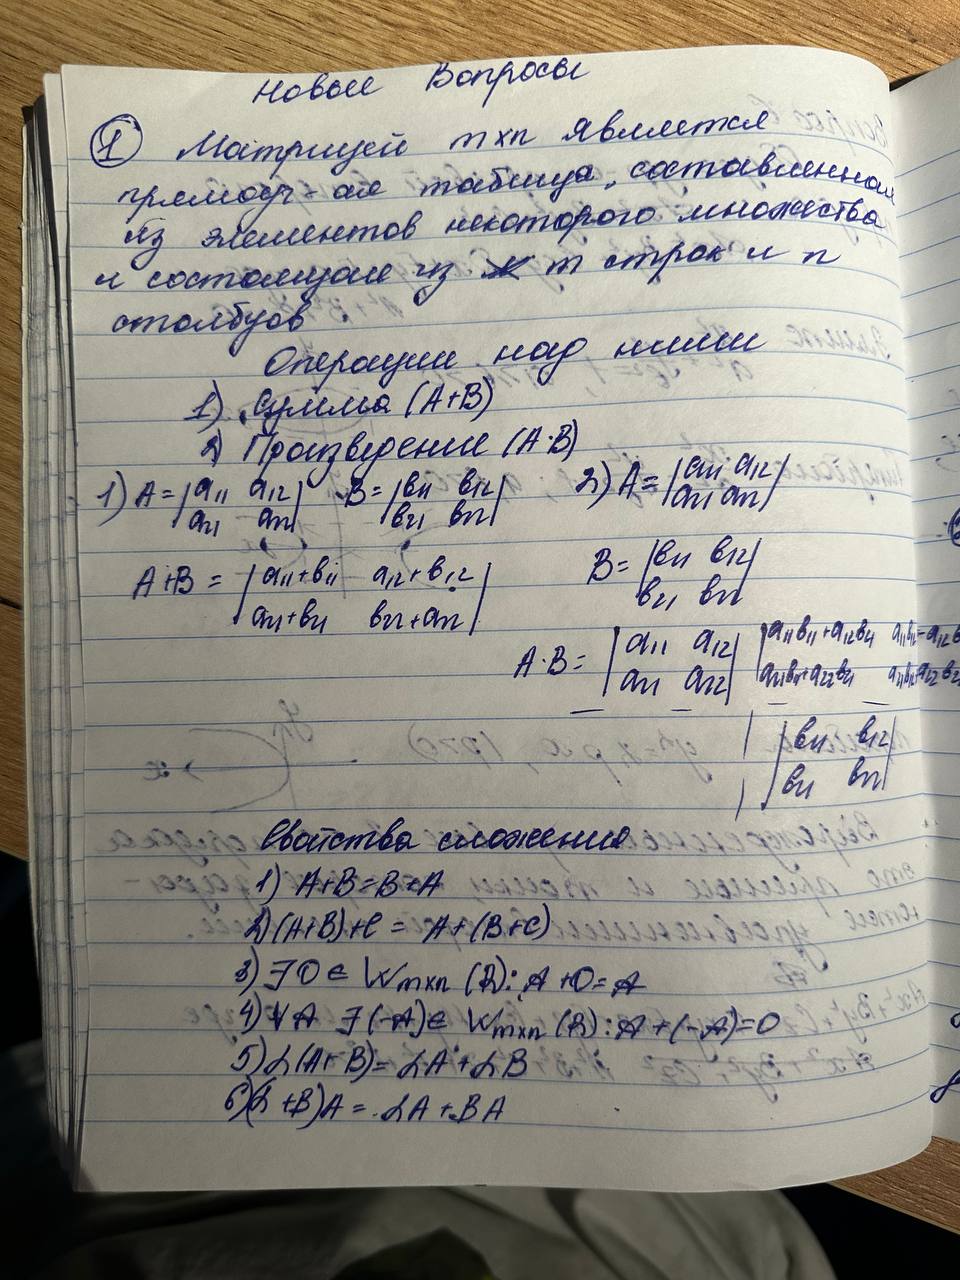 Новые Вопросы
① Матрицей m×n является
прямоуг-ая таблица, составленная
из элементов некоторого множества
и состоящая из m строк и n
столбцов
Операции над ними
1) Сумма (A+B)
2) Произведение (A·B)
1) A = |a₁₁ a₁₂| B = |b₁₁ b₁₂| 2) A = |a₁₁ a₁₂|
|a₂₁ a₂₂| |b₂₁ b₂₂| |a₂₁ a₂₂|
A+B = |a₁₁+b₁₁ a₁₂+b₁₂| B = |b₁₁ b₁₂|
|a₂₁+b₂₁ b₂₂+a₂₂| |b₂₁ b₂₂|
A·B = |a₁₁ a₁₂| |a₁₁b₁₁+a₁₂b₂₁
|a₂₁ a₂₂| |a₂₁b₁₁+a₂₂b₂₁
|b₁₁ b₁₂|
|b₂₁ b₂₂|
Свойства сложения
1) A+B=B+A
2) (A+B)+C = A+(B+C)
3) ∃O ∈ Wm×n (R): A+O=A
4) ∀A ∃(-A)∈ Wm×n (R): A+(-A)=O
5) α(A+B)= αA+αB
6) (α+B)A = αA+BA